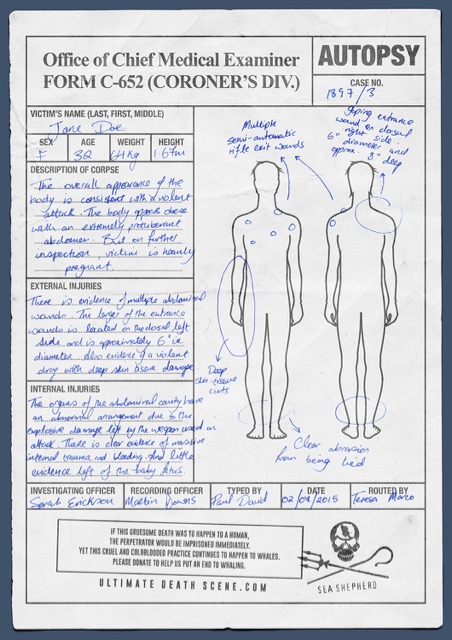 Office of Chief Medical Examiner
FORM C-652 (CORONER'S DIV.)
AUTOPSY
CASE NO.
1897/3
VICTIM'S NAME (LAST, FIRST, MIDDLE)
Jane Doe
SEX
AGE
WEIGHT
HEIGHT
F
32
64kg
1.67m
DESCRIPTION OF CORPSE
The overall appearance of the
body is consistent with a violent
attack. The body appears obese
with an extremely protuberant
abdomen. But on further
inspection, victim is heavily
pregnant.
EXTERNAL INJURIES
There is evidence of multiple abdominal
wounds. The larger of the entrance
wounds is located on the dorsal left
side and is approximately 6" in
diameter. Also evidence of a violent
drag with deep skin tissue damage
INTERNAL INJURIES
The organs of the abdominal cavity have
an abnormal arrangement due to the
explosive damage left by the weapon used in
attack. There is clear evidence of massive
internal trauma and bleeding. And little
evidence left of the baby fetus.
Multiple
semi-automatic
rifle exit wounds
gaping entrance
wound on dorsal
right side.
6" diameter and
approx. 8" deep
Deep
skin-tissue
cuts
Clear abrasion
from being tied
INVESTIGATING OFFICER
RECORDING OFFICER
TYPED BY
DATE
ROUTED BY
Sarah Erickson
Martin Downs
Paul David
02/04/2015
Teresa Marco
IF THIS GRUESOME DEATH WAS TO HAPPEN TO A HUMAN,
THE PERPETRATOR WOULD BE IMPRISONED IMMEDIATELY.
YET THIS CRUEL AND COLDBLOODED PRACTICE CONTINUES TO HAPPEN TO WHALES.
PLEASE DONATE TO HELP US PUT AN END TO WHALING.
ULTIMATE DEATH SCENE.COM
SEA SHEPHERD